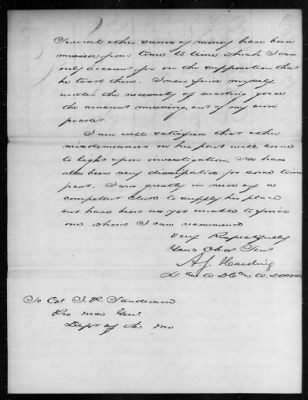 Several other sums of money have been
missed from time to time which I can
only account for on the supposition that
he took them. I now find myself
under the necessity of making good
the amount missing, out of my own
pocket.
I am well satisfied that other
misdemeanors on his part will come
to light upon investigation, he has
also been very dissipated for some time
past. I am greatly in need of a
competent clerk to supply his place
but have been as yet unable to find
one whom I can recommend
Very Respectfully
Your Obdt Servt
A. J. Harding
To Col J. P. Sanderson
Pro Mar Genl
Dept of the Mo